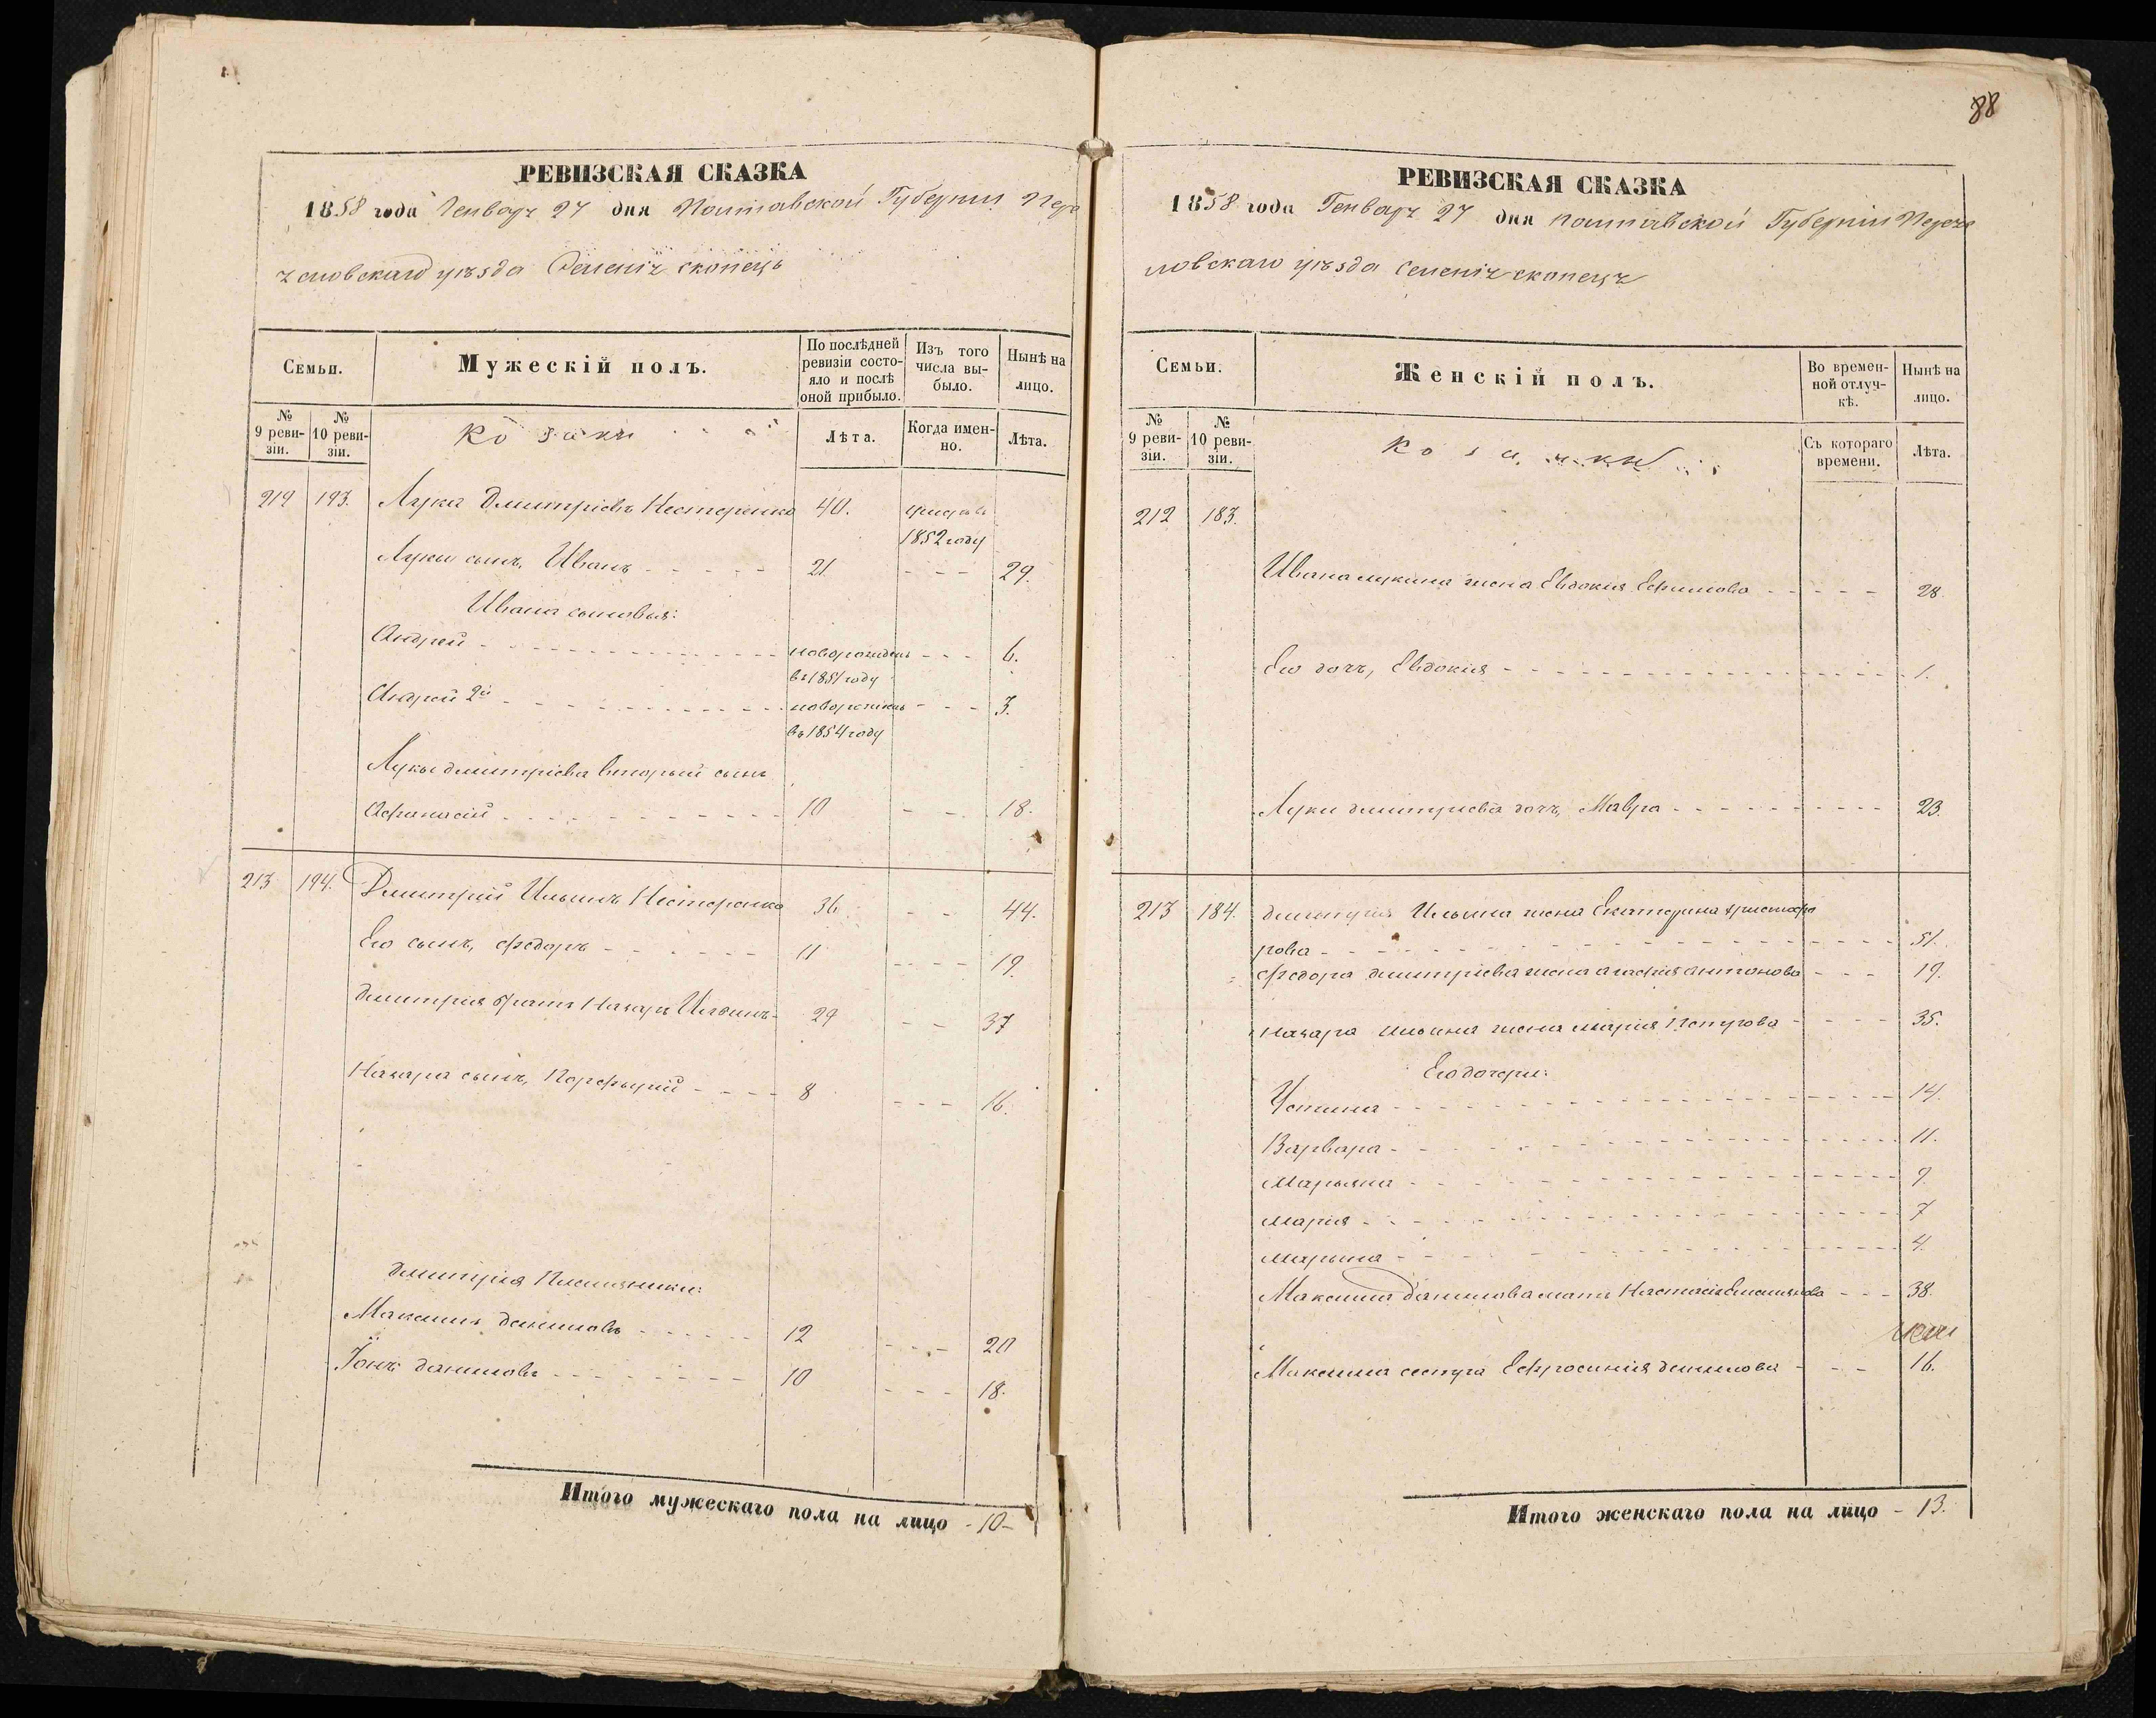 88
РЕВИЗСКАЯ СКАЗКА
1858 года Генваря 27 дня Полтавской Губернии Пере
яславскаго уѣзда Селенія скопецъ
Семьи.
Мужескій полъ.
По послѣдней ревизіи состояло и послѣ оной прибыло.
Изъ того числа выбыло.
Нынѣ на лицо.
№ 9 ревизіи.
№ 10 ревизіи.
Козаки
Лѣта.
Когда именно.
Лѣта.
212 193. Лука Дмитріевъ Нестеренко 40.
1852 году
Луки сынъ, Иванъ 21. 29.
Ивана сыновья:
Андрей новорожденъ 6.
въ 1851 году
Андрей 2й новорожденъ 3.
въ 1854 году
Луки дмитріева вторый сынъ
Афанасій 10 18.
213 194. Дмитрий Ильинъ Нестеренко 36. 44.
Его сынъ, Федоръ 11 19.
Дмитрия братъ Назаръ Ильинъ 29 37
Назара сынъ, Порфирий 8 16.
Дмитрия Племянники:
Максимъ даниловъ 12 20
Іонъ даниловъ 10 18.
Итого мужескаго пола на лицо - 10 -
РЕВИЗСКАЯ СКАЗКА
1858 года Генваря 27 дня полтавской Губерніи Перея
славскаго уѣзда селенія скопецъ
Семьи.
Женскій полъ.
Во временной отлучкѣ.
Нынѣ на лицо.
№ 9 ревизіи.
№ 10 ревизіи.
Козачки
Съ котораго времени.
Лѣта.
212 183.
Ивана лукина жена Евдокия Ефимова 28.
Его дочь, Евдокия 1.
Луки дмитриева дочь, Мавра 23.
213 184. дмитрия Ильина жена Екатерина христофо
рова 51.
Федора дмитриева жена агафия антонова 19.
Назара ильина жена мария Петрова 35.
Его дочери:
Устина 14.
Варвара 11.
Марьяна 9.
мария 7
марьина 4.
Максима данилова мать Настасия Емельянова 38.
Максима сестра Ефросиния данилова 16.
Итого женскаго пола на лицо - 13.